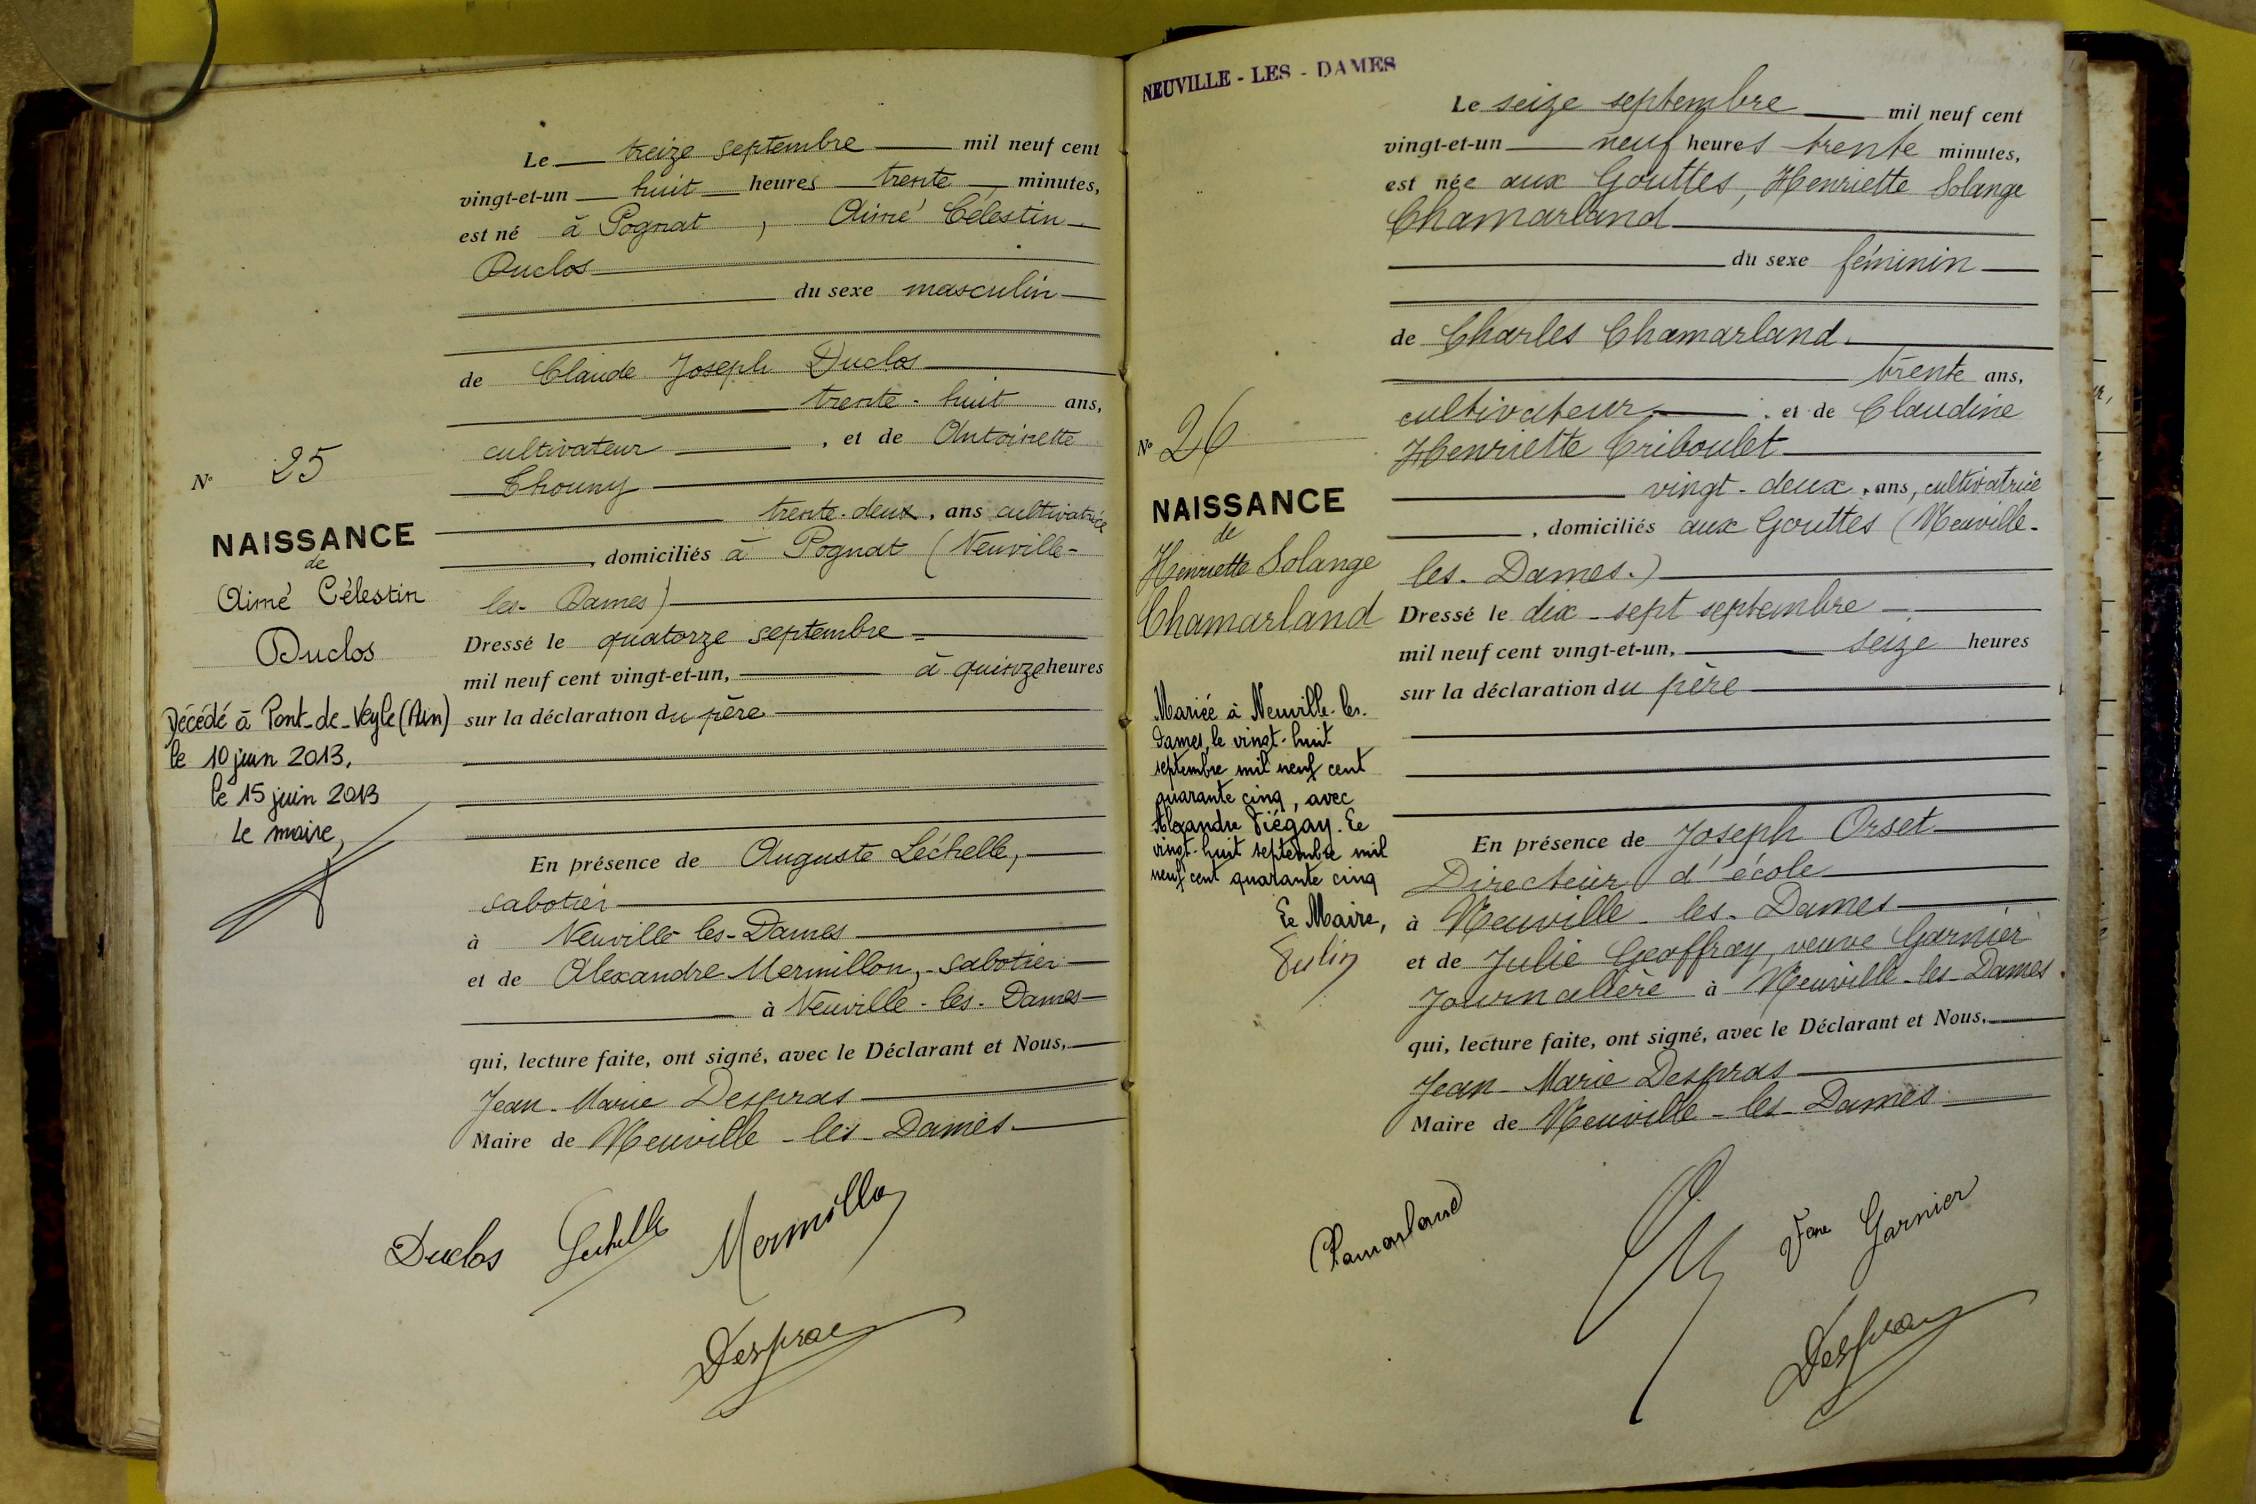 Le treize septembre mil neuf cent
vingt-et-un huit heures trente minutes,
est né à Pognat, Aimé Célestin
Duclos
du sexe masculin
de Claude Joseph Duclos
trente-huit ans,
cultivateur, et de Antoinette
Chouny
trente-deux, ans cultivatrice
, domiciliés à Pognat (Neuville-
les-Dames)
Dressé le quatorze septembre
mil neuf cent vingt-et-un, à quinze heures
sur la déclaration du père
En présence de Auguste Léchelle,
sabotier
à Neuville-les-Dames
et de Alexandre Mermillon, sabotier
à Neuville-les-Dames
qui, lecture faite, ont signé, avec le Déclarant et Nous,
Jean-Marie Despras
Maire de Neuville-les-Dames
N° 25
NAISSANCE
de
Aimé Célestin
Duclos
Décédé à Pont-de-Veyle (Ain)
le 10 juin 2013.
le 15 juin 2013
Le maire,
Duclos Lechelle Mermillon
Despras
NEUVILLE-LES-DAMES
Le seize septembre mil neuf cent
vingt-et-un neuf heures trente minutes,
est née aux Gouttes, Henriette Solange
Chamarland
du sexe féminin
de Charles Chamarland
trente ans,
cultivateur, et de Claudine
Henriette Criboulet
vingt-deux, ans, cultivatrice
, domiciliés aux Gouttes (Neuville-
les-Dames.)
Dressé le dix-sept septembre
mil neuf cent vingt-et-un, seize heures
sur la déclaration du père
En présence de Joseph Orset
Directeur d'école
à Neuville-les-Dames
et de Julie Geoffray, veuve Garnier
Journalière à Neuville-les-Dames.
qui, lecture faite, ont signé, avec le Déclarant et Nous,
Jean-Marie Despras
Maire de Neuville-les-Dames
N° 26
NAISSANCE
de
Henriette Solange
Chamarland
Mariée à Neuville-les-
Dames, le vingt-huit
septembre mil neuf cent
quarante cinq, avec
Alexandre Piégay. Le
vingt-huit septembre mil
neuf cent quarante cinq
Le Maire,
Chamarland Vve Garnier
Despras